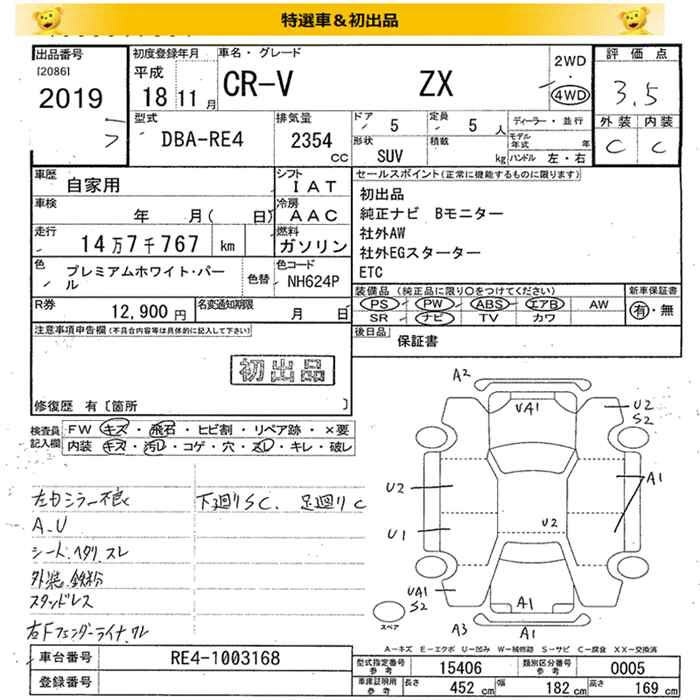 特選車＆初出品
出品番号 初度登録年月 車名・グレード 評価点
[2086]
2019
平成 18 11月 CR-V ZX 2WD・4WD 3.5
型式 DBA-RE4 排気量 2354 CC ドア 5 定員 5 人 ディーラー・並行 外装 内装
形状 SUV 積載 kg モデル年式 年 C C
ハンドル 左・右
車歴 自家用 シフト IAT セールスポイント(正常に機能するものに限ります)
車検 年 月( 日) 冷房 AAC 初出品
純正ナビ Bモニター
走行 14万7千767 km 燃料 ガソリン 社外AW
社外EGスターター
色 プレミアムホワイト・パール 色替 色コード NH624P ETC
装備品(純正品に限り〇をつけてください) 新車保証書
R券 12,900円 名変通知期限 月 日 PS PW ABS エアB AW 有・無
SR ナビ TV カワ
注意事項申告欄(不具合内容等は具体的に記入して下さい) 後日品 保証書
初出品
修復歴 有 [箇所 ]
検査員記入欄 FW キズ・飛石・ヒビ割・リペア跡・×要
内装 キズ・汚レ・コゲ・穴・スレ・キレ・破レ
左右ミラー不良 下廻りSC. 足廻りC
A.U
シート.ヘタリ.スレ
外装.鉄粉
スタッドレス
右Fフェンダーライナー
A2
VA1 U2 S2
U2 A1
U1 U2
UA1 S2 A1
スペア A3 A1
A－キズ E－エクボ U－凹み W－補修跡 S－サビ C－腐食 XX－交換済
車台番号 RE4-1003168 型式指定番号 参考 15406 類別区分番号 参考 0005
登録番号 車庫証明用 参考 長さ 452 cm 幅 182 cm 高さ 169 cm